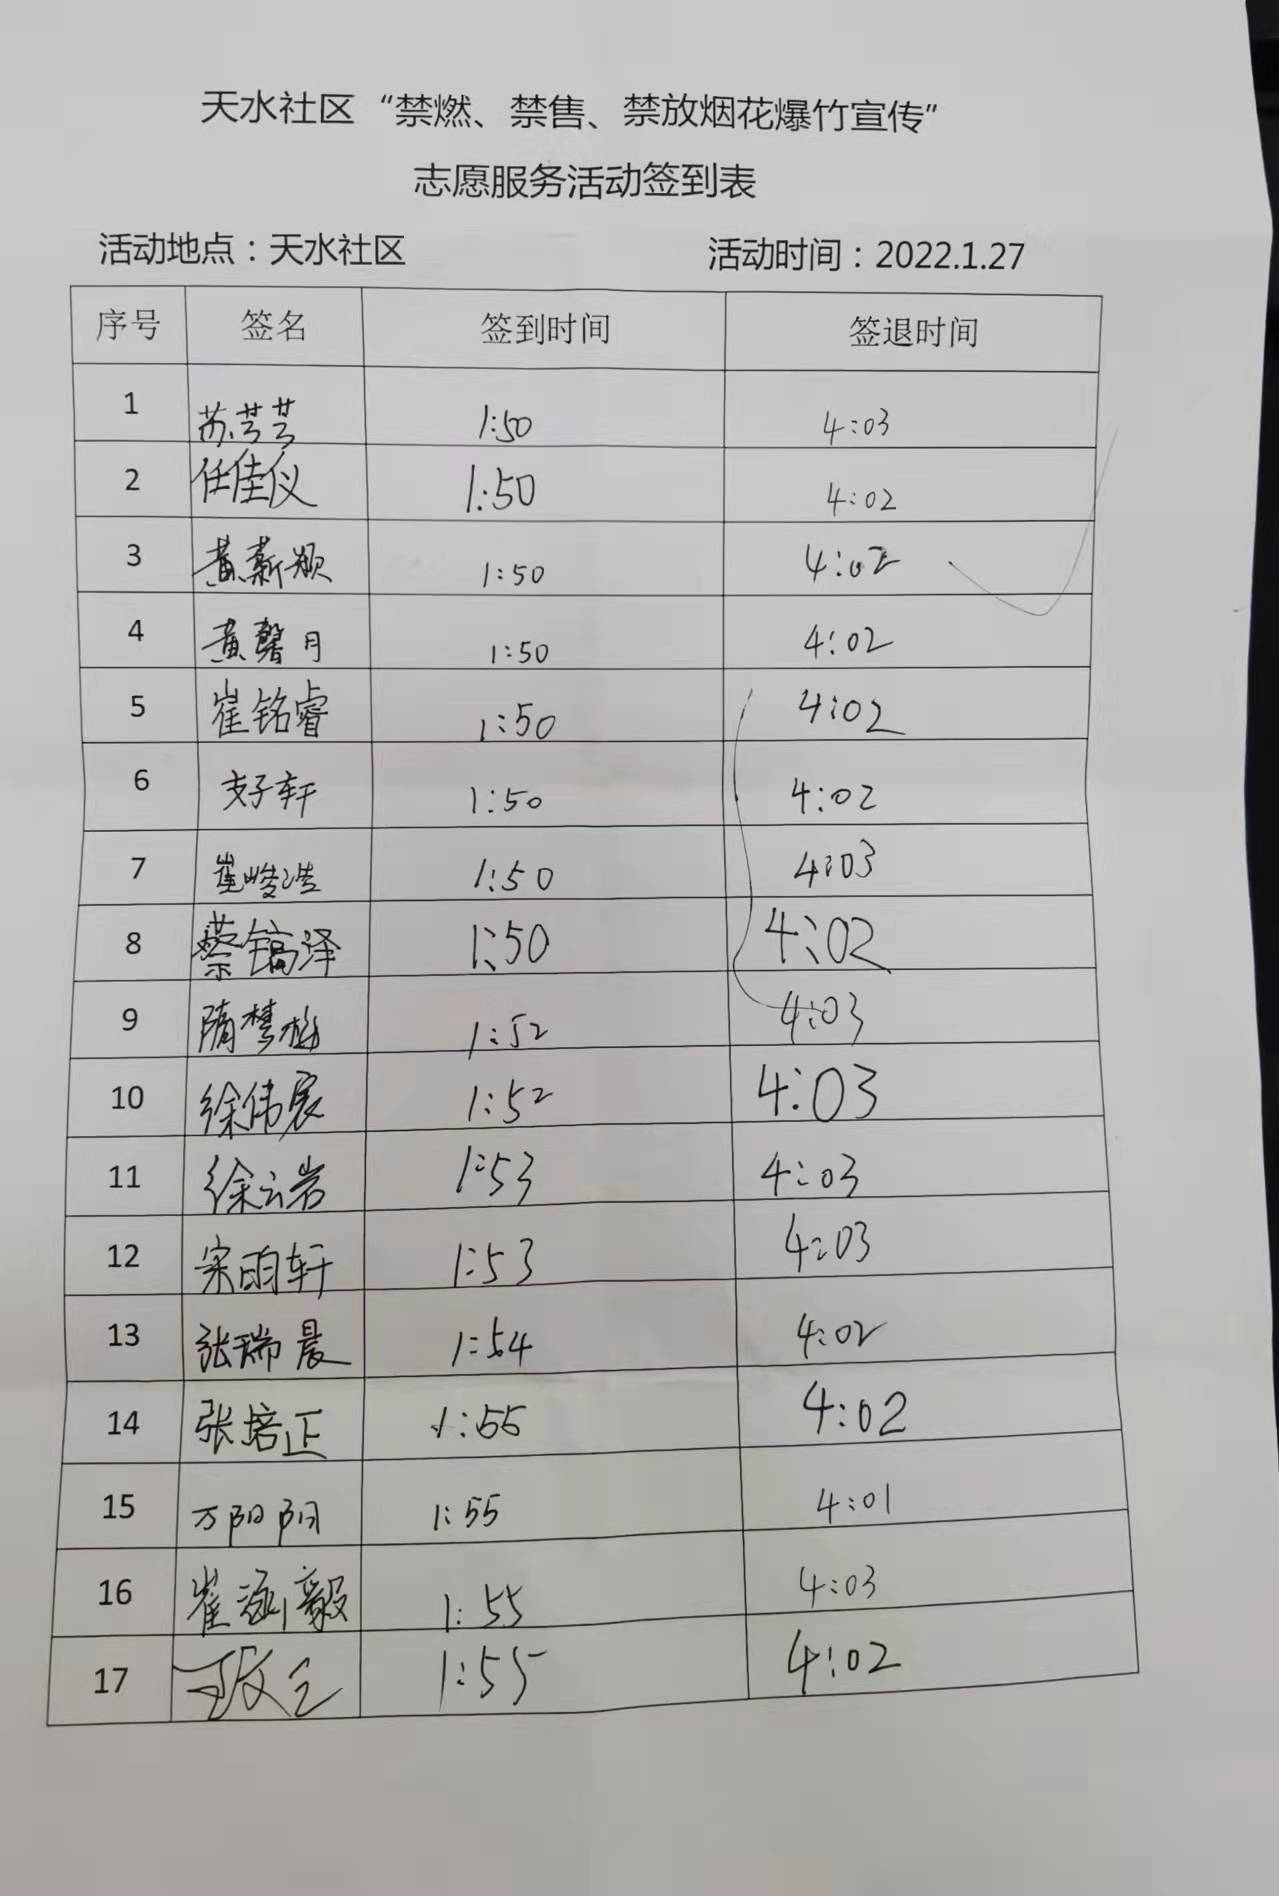 天水社区“禁燃、禁售、禁放烟花爆竹宣传”
志愿服务活动签到表
活动地点：天水社区 活动时间：2022.1.27
序号 签名 签到时间 签退时间
1 苏芸芸 1:50 4:03
2 任佳仪 1:50 4:02
3 黄薪颖 1:50 4:02
4 黄馨月 1:50 4:02
5 崔铭睿 1:50 4:02
6 支子轩 1:50 4:02
7 崔峻浩 1:50 4:03
8 蔡镐泽 1:50 4:02
9 隋梦 1:52 4:03
10 徐伟宸 1:52 4:03
11 徐云岩 1:53 4:03
12 宋明轩 1:53 4:03
13 张瑞晨 1:54 4:02
14 张培正 1:55 4:02
15 万阳阳 1:55 4:01
16 崔涵毅 1:55 4:03
17 1:55 4:02